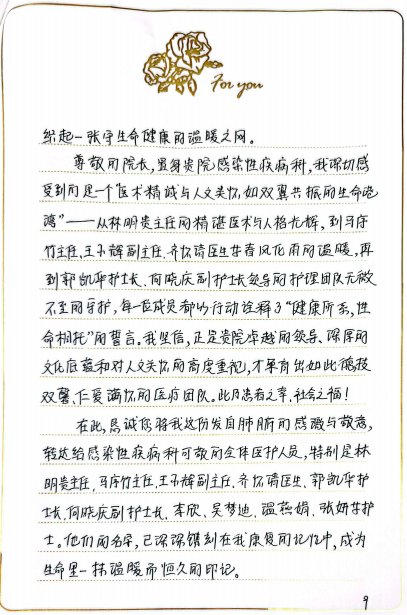 For you
织起一张守生命健康的温暖之网。
尊敬的院长,置身贵院感染性疾病科,我深切感
受到的是一个“医术精诚与人文关怀如双翼共振的生命港
湾”——从林明贵主任的精湛医术与人格光辉,到马序
竹主任、王玉辉副主任、齐忻请医生春风化雨的温暖,再
到郭凯华护士长、何晓庆副护士长领导的护理团队无微
不至的守护,每一位成员都以行动诠释了“健康所系,性
命相托”的誓言。我坚信,正是贵院卓越的领导、深厚的
文化底蕴和对人文关怀的高度重视,才孕育出如此德技
双馨、仁爱满怀的医疗团队。此乃患者之幸,社会之福!
在此,恳诚您将我这份发自肺腑的感激与敬意,
转达给感染性疾病科可敬的全体医护人员,特别是林
明贵主任、马序竹主任、王玉辉副主任、齐忻请医生、郭凯华护
士长、何晓庆副护士长、李欣、吴梦迪、温燕娟、张妍等护
士。他们的名字,已深深镌刻在我康复的记忆中,成为
生命里一抹温暖而恒久的印记。
9